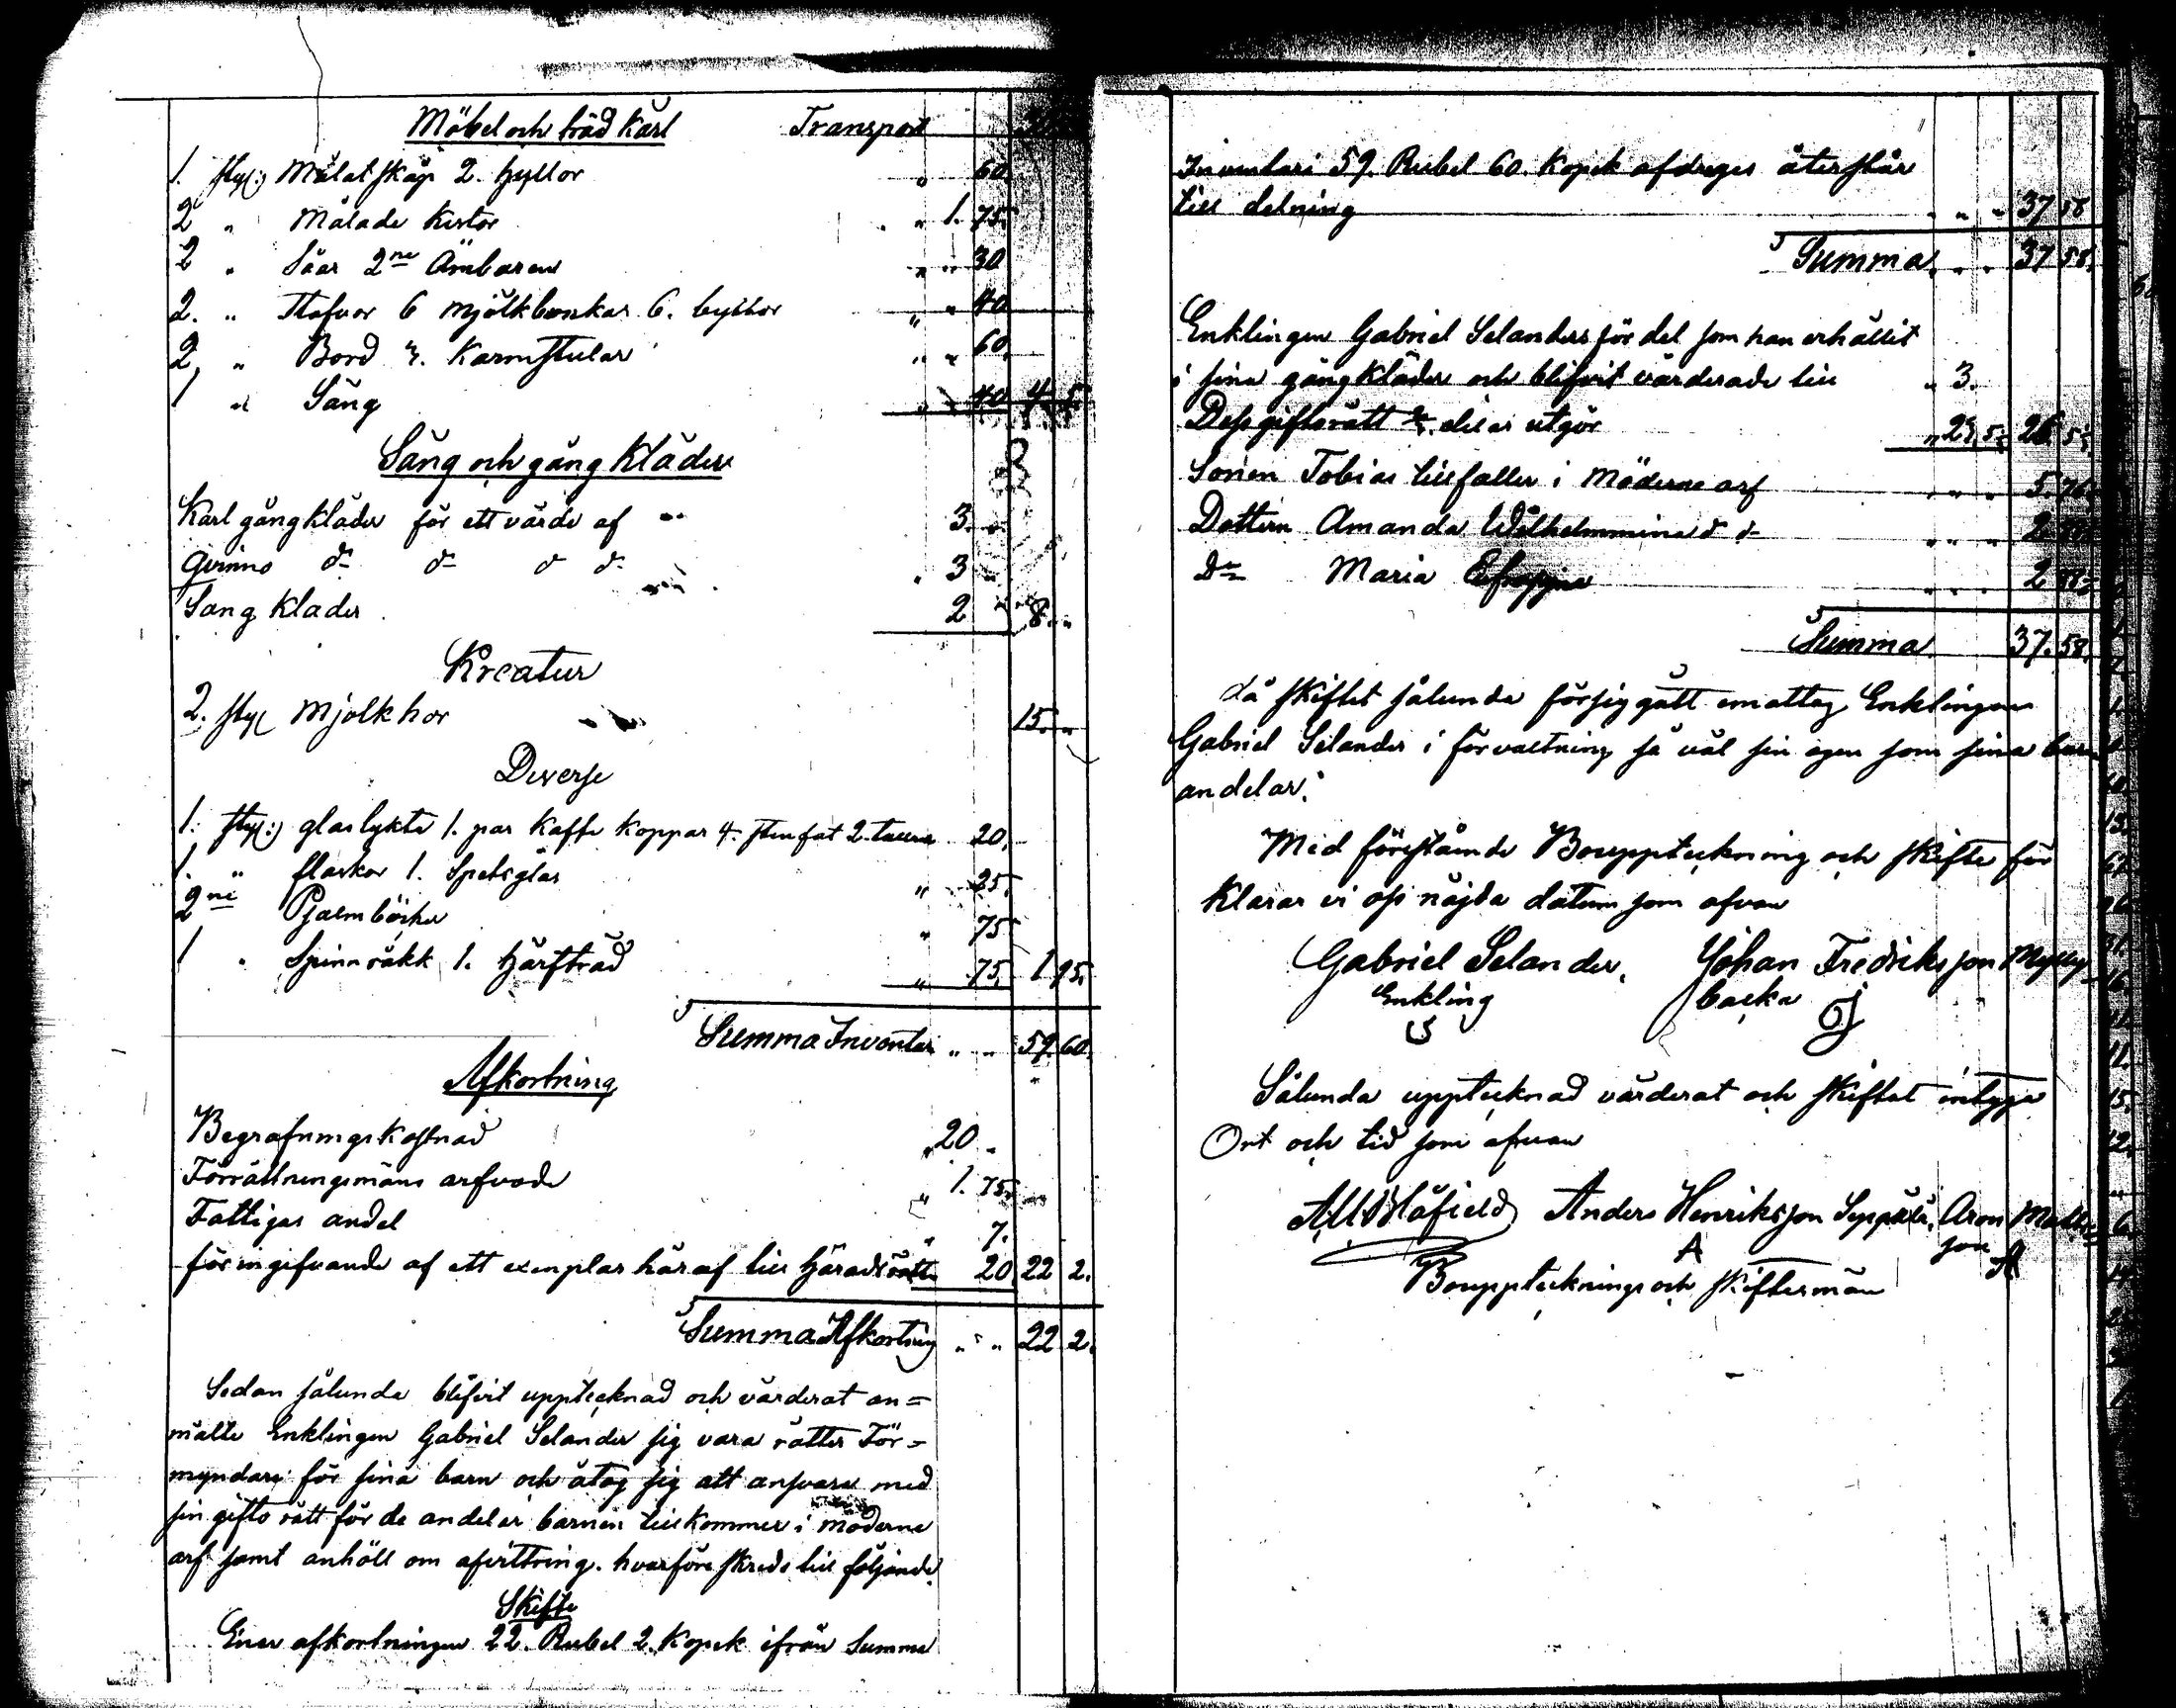 Möbel och träd kärl Transport
1. sty: Målat skåp 2. hyllor " 60.
2 " Målade kistor " 1. 75.
2 " Såar 2ne Ämbaren " " 30
2. " Stafvor 6 mjölkbunkar 6. byttor " " 40
2, " Bord 2. Karmstolar " " 60.
1 " Säng " " 40 4 5.
Säng och gång kläder
Karl gångkläder för ett värde af " 3. "
Qvinno do do do do " 3 "
Sang klader 2 " 8. "
Kreatur
2. sty mjolk kor 15. "
Diverse
1. sty: glaslykta 1. par kaffe koppar 4. stenfat 2. 20.
1. " flaskor 1. Spetsglas " 25.
2ne Psalmböcker " 75
1 " Spinnråkk 1. Härfträd " 75. 1 95.
Summa Inventari " " 59. 60.
Afkortning
Begrafningskostnad " 20 "
Förrättningsmäns arfvode " 1. 75.
Fattigas andel " 7.
för ingifvande af ett exemplar häraf till Häradsrätten 20 22 2.
Summa Afkortning " " 22 2.
Sedan sålunda blifvit upptecknad och värderat an=
mälte Enklingen Gabriel Selander sig vara rätter För=
myndare för sina barn och åtog sig att ansvara med
sin gifto rätt för de andelar barnen tillkommer i möderne
arf samt anhöll om afvittring. hvarföre skreds till följande
Skifte
Enar afkortningen 22. Rubel 2. Kopek ifrån Summa
Inventari 59. Rubel 60. Kopek afdrages återstår
till delning " " " 37 58
Summa " " 37 58.
Enklingen Gabriel Selanders fördel som han erhållit
i sina gångkläder och blifvit värderade till " 3.
Dess giftorätt delar utgör " 23, 5 26 5
Sonen Tobias tillfaller i Möderne arf " " " 5. 76
Dottern Amanda Wilhelmmina d d " " " 2.
Do Maria " " " 2
Summa 37. 58.
då skiftet sålunda försiggått emottog Enklingen
Gabriel Selander i förvaltning så väl sin egen som sina barn
andelar.
Med förestående Bouppteckning och skifte för
klarar vi oss nöjda datum som ofvan
Gabriel Selander, Johan Fredriksson Mylly=
Enkling backa
Sålunda upptecknad värderat och skiftat intyga
Ort och tid som ofvan
Anders Henriksson Seppälä, Aron Matts=
A son
Bouppteckning och skiftesmän